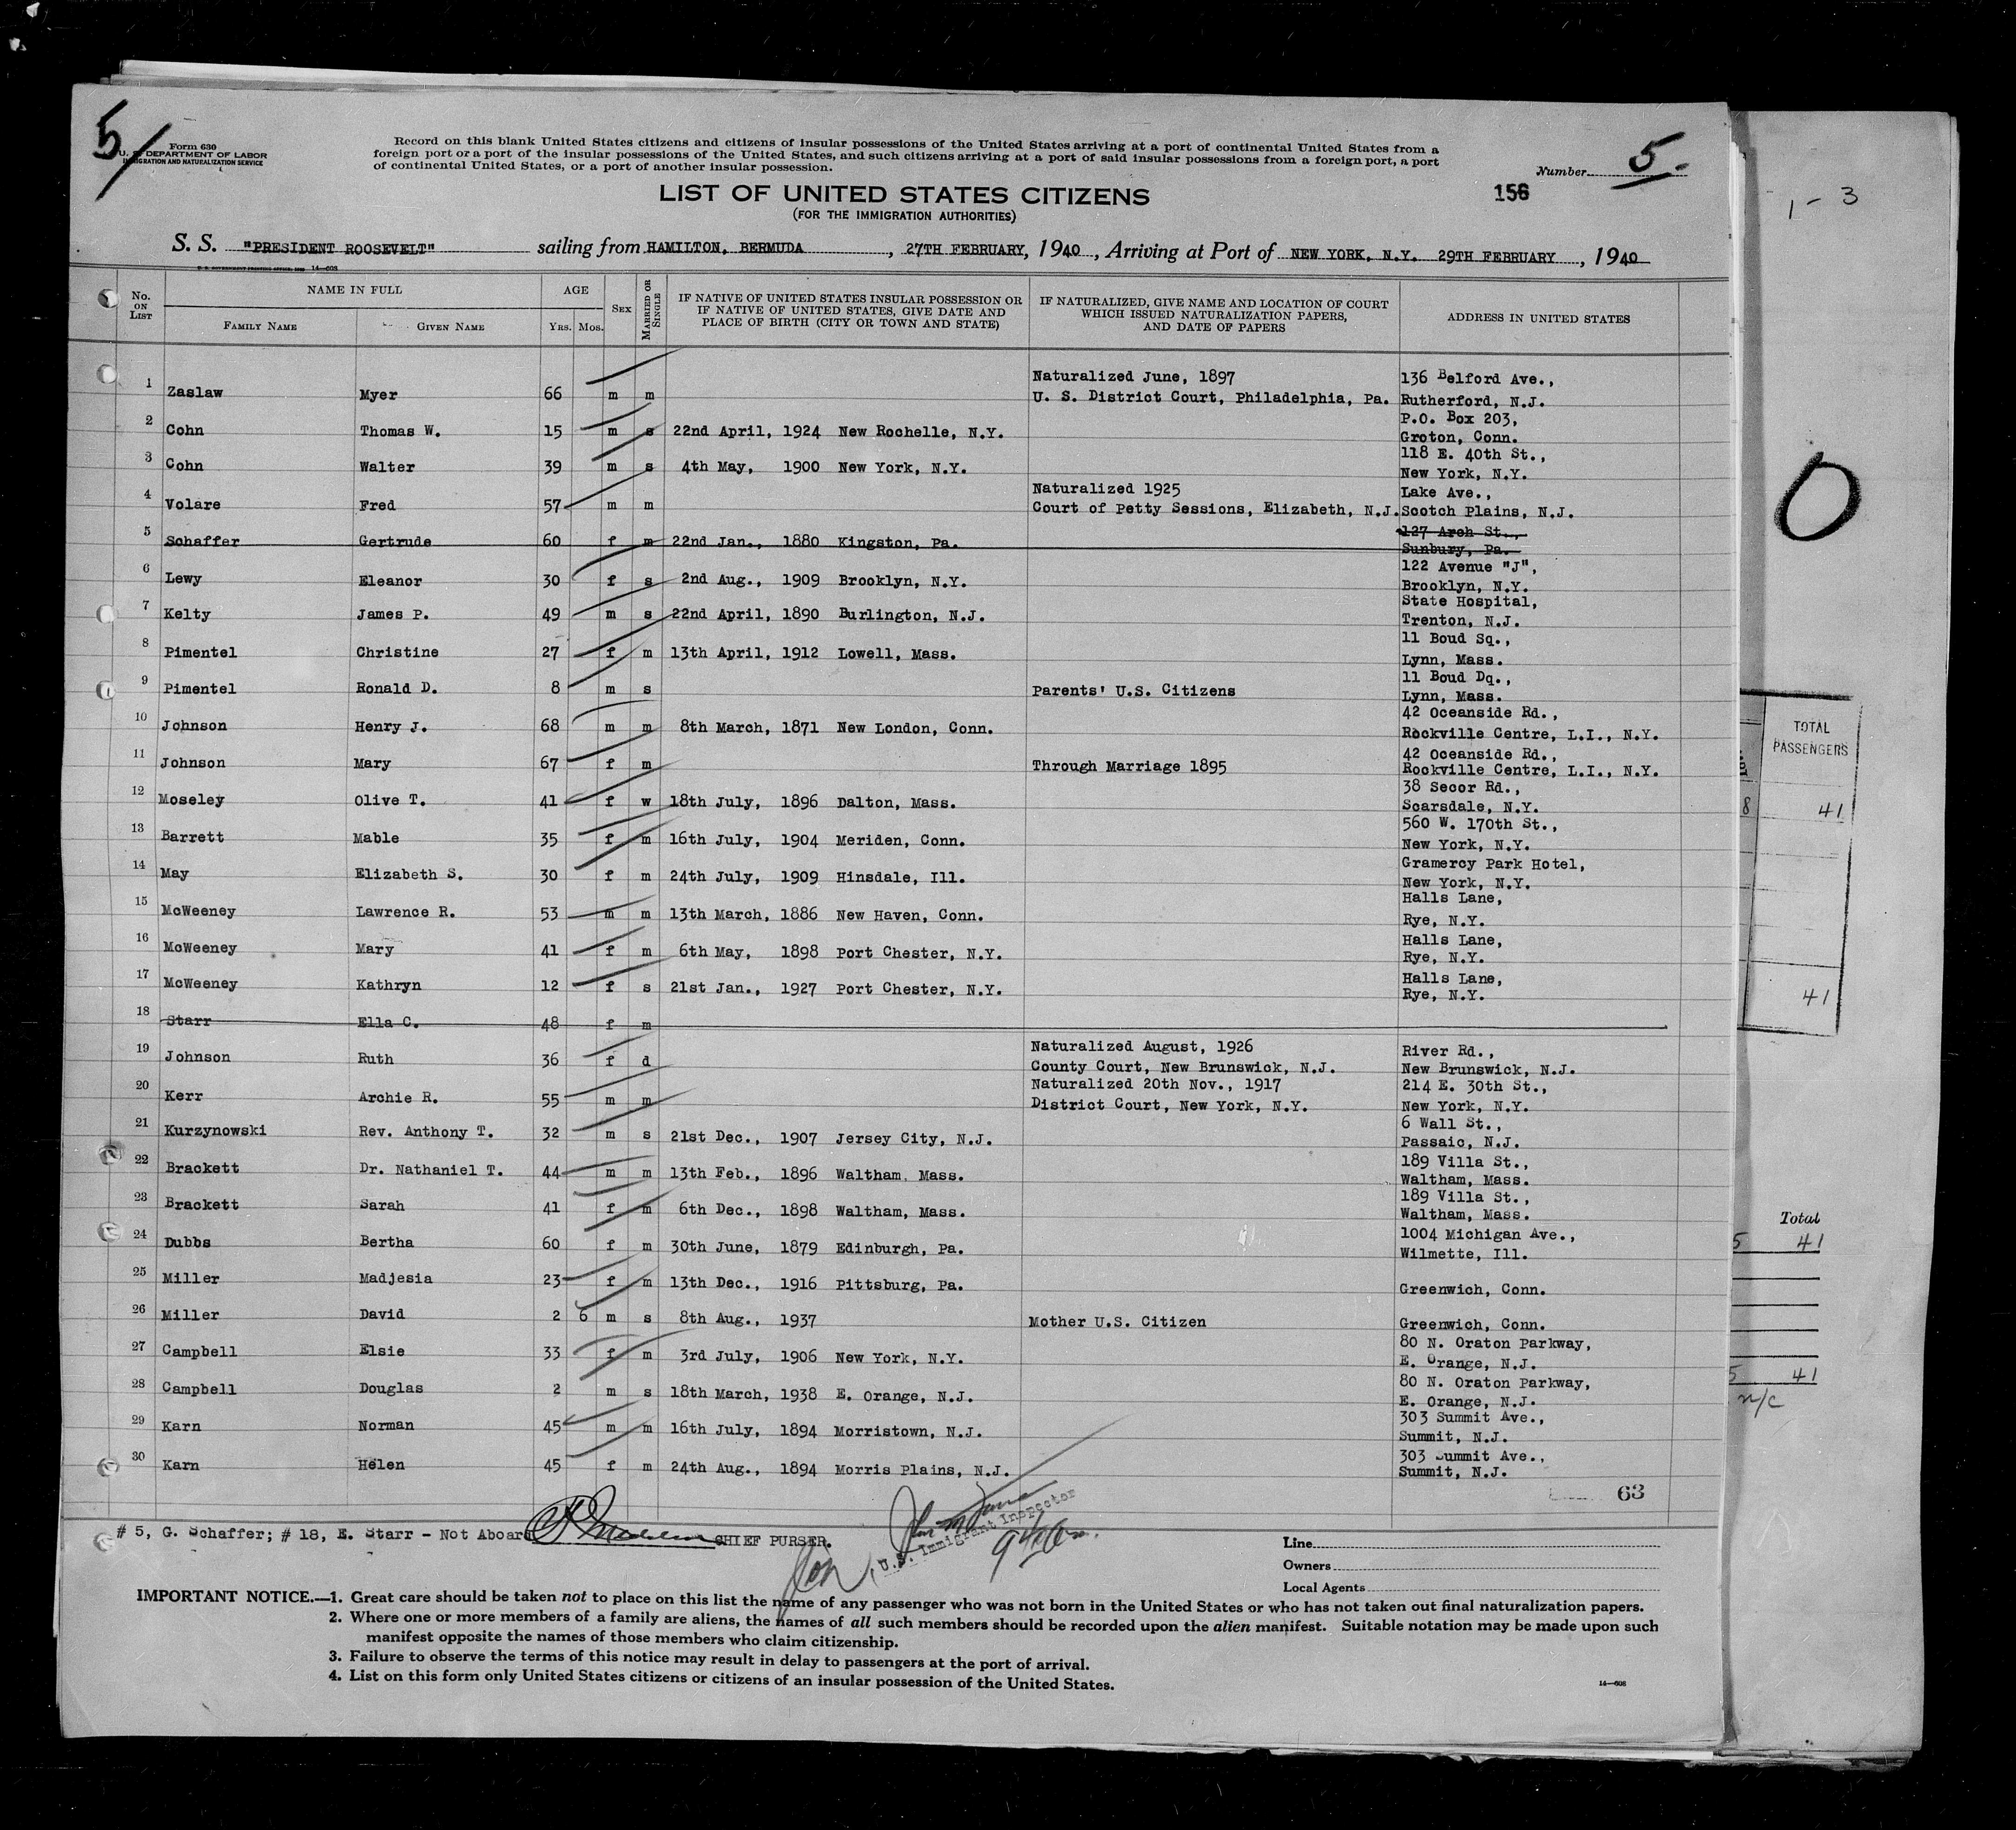 5/
Form 630
U. S. DEPARTMENT OF LABOR
IMMIGRATION AND NATURALIZATION SERVICE
Record on this blank United States citizens and citizens of insular possessions of the United States arriving at a port of continental United States from a
foreign port or a port of the insular possessions of the United States, and such citizens arriving at a port of said insular possessions from a foreign port, a port
of continental United States, or a port of another insular possession.
Number 5.
LIST OF UNITED STATES CITIZENS
156
(FOR THE IMMIGRATION AUTHORITIES)
1-3
S. S. "PRESIDENT ROOSEVELT" sailing from HAMILTON, BERMUDA, 27TH FEBRUARY, 1940, Arriving at Port of NEW YORK, N.Y. 29TH FEBRUARY, 1940
No. ON LIST NAME IN FULL FAMILY NAME GIVEN NAME AGE YRS. MOS. SEX MARRIED OR SINGLE IF NATIVE OF UNITED STATES INSULAR POSSESSION OR IF NATIVE OF UNITED STATES, GIVE DATE AND PLACE OF BIRTH (CITY OR TOWN AND STATE) IF NATURALIZED, GIVE NAME AND LOCATION OF COURT WHICH ISSUED NATURALIZATION PAPERS, AND DATE OF PAPERS ADDRESS IN UNITED STATES
Naturalized June, 1897 136 Belford Ave.,
1 Zaslaw Myer 66 m m U. S. District Court, Philadelphia, Pa. Rutherford, N.J.
P.O. Box 203,
2 Cohn Thomas W. 15 m s 22nd April, 1924 New Rochelle, N.Y. Groton, Conn.
118 E. 40th St.,
3 Cohn Walter 39 m s 4th May, 1900 New York, N.Y. New York, N.Y.
Naturalized 1925 Lake Ave.,
4 Volare Fred 57 m m Court of Petty Sessions, Elizabeth, N.J. Scotch Plains, N.J.
127 Arch St.,
5 Schaffer Gertrude 60 f m 22nd Jan., 1880 Kingston, Pa. Sunbury, Pa.
122 Avenue "J",
6 Lewy Eleanor 30 f s 2nd Aug., 1909 Brooklyn, N.Y. Brooklyn, N.Y.
State Hospital,
7 Kelty James P. 49 m s 22nd April, 1890 Burlington, N.J. Trenton, N.J.
11 Boud Sq.,
8 Pimentel Christine 27 f m 13th April, 1912 Lowell, Mass. Lynn, Mass.
11 Boud Dq.,
9 Pimentel Ronald D. 8 m s Parents' U.S. Citizens Lynn, Mass.
42 Oceanside Rd.,
10 Johnson Henry J. 68 m m 8th March, 1871 New London, Conn. Rockville Centre, L.I., N.Y.
42 Oceanside Rd.,
11 Johnson Mary 67 f m Through Marriage 1895 Rockville Centre, L.I., N.Y.
38 Secor Rd.,
12 Moseley Olive T. 41 f w 18th July, 1896 Dalton, Mass. Scarsdale, N.Y.
560 W. 170th St.,
13 Barrett Mable 35 f m 16th July, 1904 Meriden, Conn. New York, N.Y.
Gramercy Park Hotel,
14 May Elizabeth S. 30 f m 24th July, 1909 Hinsdale, Ill. New York, N.Y.
Halls Lane,
15 McWeeney Lawrence R. 53 m m 13th March, 1886 New Haven, Conn. Rye, N.Y.
Halls Lane,
16 McWeeney Mary 41 f m 6th May, 1898 Port Chester, N.Y. Rye, N.Y.
Halls Lane,
17 McWeeney Kathryn 12 f s 21st Jan., 1927 Port Chester, N.Y. Rye, N.Y.
18 Starr Ella C. 48 f m
Naturalized August, 1926 River Rd.,
19 Johnson Ruth 36 f d County Court, New Brunswick, N.J. New Brunswick, N.J.
Naturalized 20th Nov., 1917 214 E. 30th St.,
20 Kerr Archie R. 55 m m District Court, New York, N.Y. New York, N.Y.
6 Wall St.,
21 Kurzynowski Rev. Anthony T. 32 m s 21st Dec., 1907 Jersey City, N.J. Passaic, N.J.
189 Villa St.,
22 Brackett Dr. Nathaniel T. 44 m m 13th Feb., 1896 Waltham, Mass. Waltham, Mass.
189 Villa St.,
23 Brackett Sarah 41 f m 6th Dec., 1898 Waltham, Mass. Waltham, Mass.
1004 Michigan Ave.,
24 Dubbs Bertha 60 f m 30th June, 1879 Edinburgh, Pa. Wilmette, Ill.
25 Miller Madjesia 23 f m 13th Dec., 1916 Pittsburg, Pa. Greenwich, Conn.
26 Miller David 2 6 m s 8th Aug., 1937 Mother U.S. Citizen Greenwich, Conn.
80 N. Oraton Parkway,
27 Campbell Elsie 33 f m 3rd July, 1906 New York, N.Y. E. Orange, N.J.
80 N. Oraton Parkway,
28 Campbell Douglas 2 m s 18th March, 1938 E. Orange, N.J. E. Orange, N.J.
303 Summit Ave.,
29 Karn Norman 45 m m 16th July, 1894 Morristown, N.J. Summit, N.J.
303 Summit Ave.,
30 Karn Helen 45 f m 24th Aug., 1894 Morris Plains, N.J. Summit, N.J.
63
# 5, G. Schaffer; # 18, E. Starr - Not Aboard CHIEF PURSER.
U.S. Immigrant Inspector
Line
Owners
Local Agents
IMPORTANT NOTICE.—1. Great care should be taken not to place on this list the name of any passenger who was not born in the United States or who has not taken out final naturalization papers.
2. Where one or more members of a family are aliens, the names of all such members should be recorded upon the alien manifest. Suitable notation may be made upon such
manifest opposite the names of those members who claim citizenship.
3. Failure to observe the terms of this notice may result in delay to passengers at the port of arrival.
4. List on this form only United States citizens or citizens of an insular possession of the United States.
14—608
0
TOTAL
PASSENGERS
8 41
41
Total
5 41
5 41
n/c